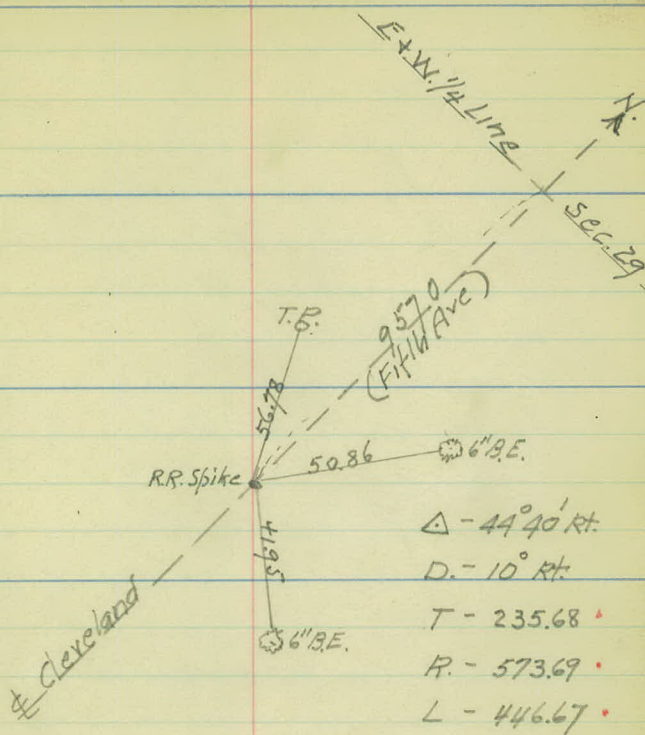 E+W. 1/4 Line
N.
Sec. 29
9570
(Fifth Ave)
T.P.
56.78
R.R. Spike
50.86
6" B.E.
41.95
6" B.E.
℄ Cleveland
Δ - 44° 40' Rt.
D. - 10° Rt.
T - 235.68
R. - 573.69
L - 446.67